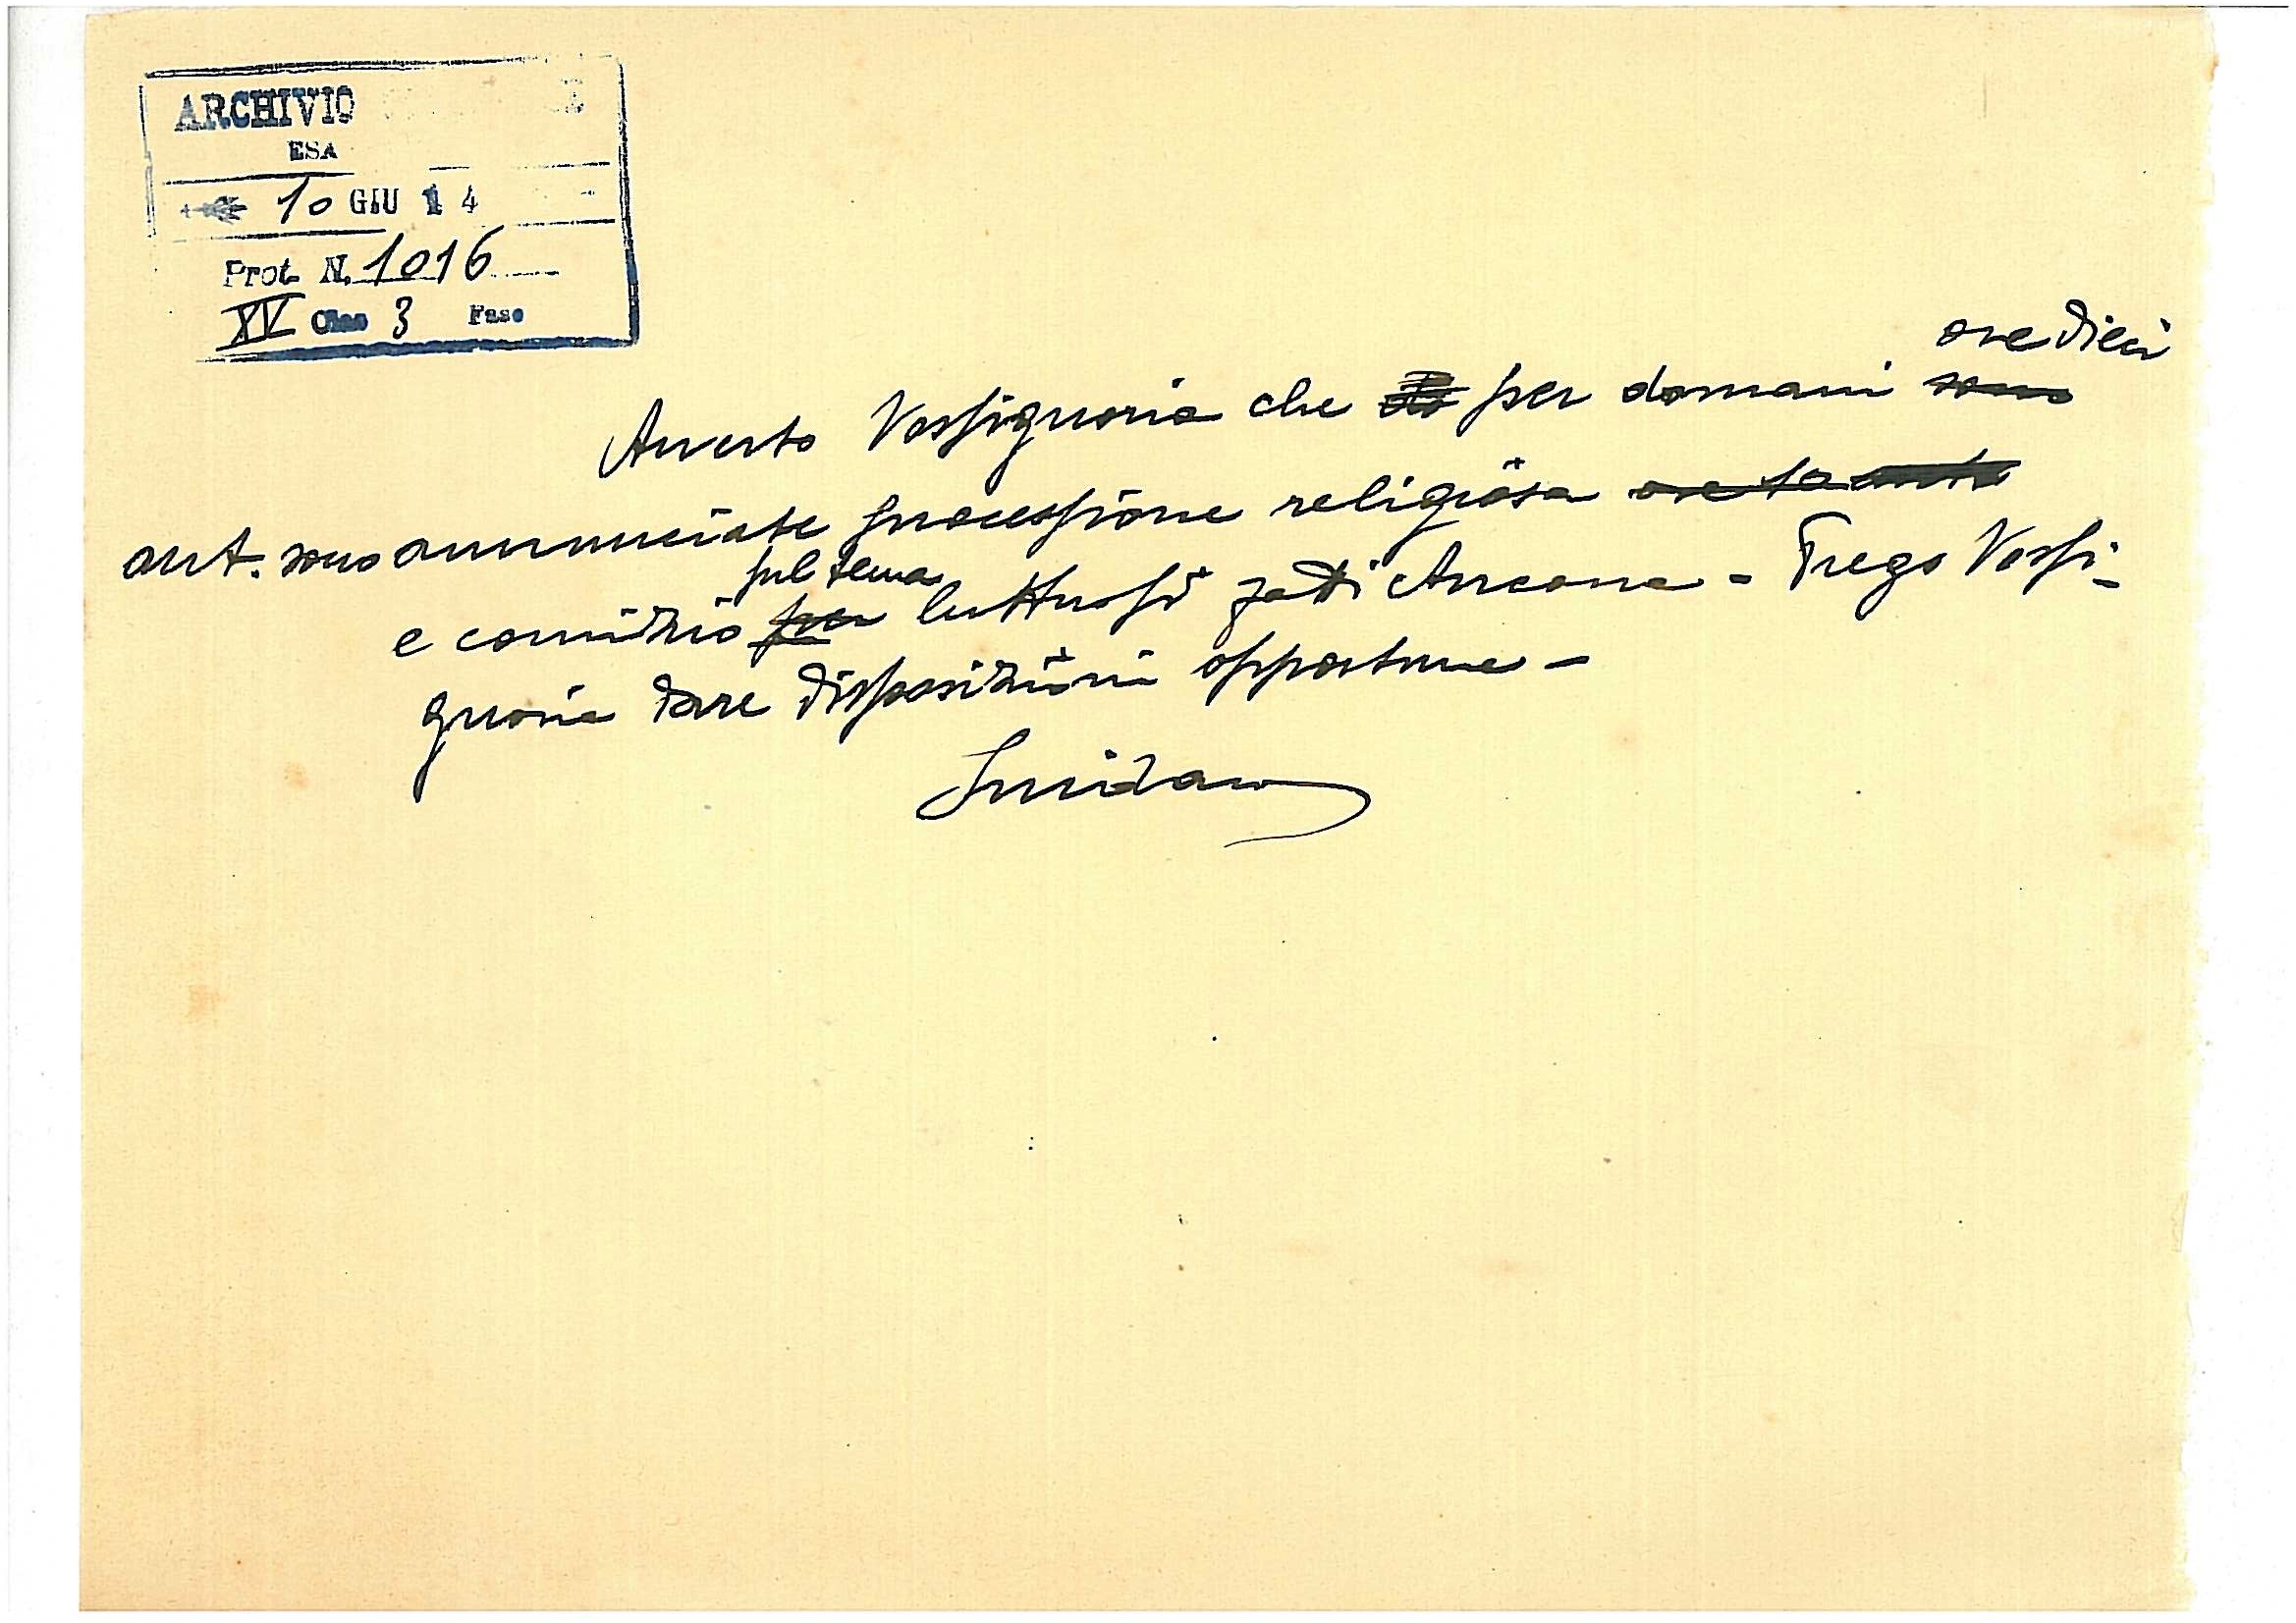 ARCHIVIO
ESA
10 GIU 1 4
Prot. N. 1016
XV Clas 3 Fasc
ore dieci
Averto Vossignoria che per domani sono
ant. sono annunciate processione religiosa ore 10
sul tema
e comizio per luttuosi fatti Ancona - Prego Vossi-
gnoria dare disposizioni opportune -